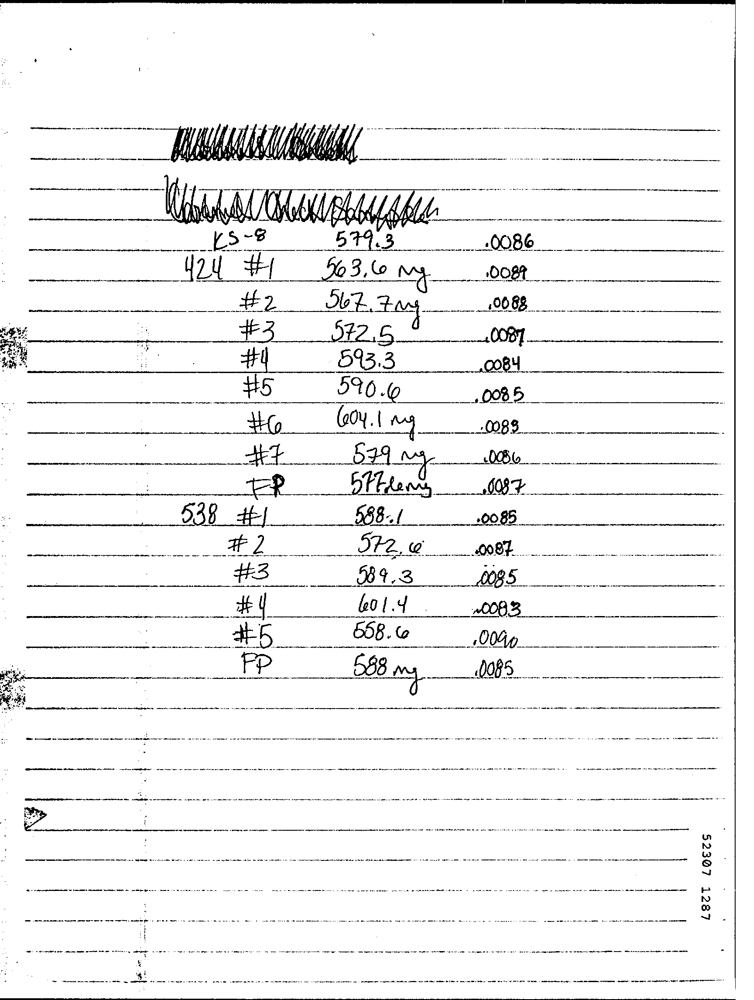 KS-8 579.3 .0086
424 #1 563.6 mg .0089
#2 567.7 mg .0088
#3 572.5 .0087
#4 593.3 .0084
#5 590.6 .0085
#6 604.1 mg .0083
#7 579 mg .0086
FP .0087
538 #1 588.1 .0085
#2 572.6 .0087
#3 589.3 .0085
#4 601.4 .0083
#5 558.6 .0090
FP 588 mg .0085
52307 1287